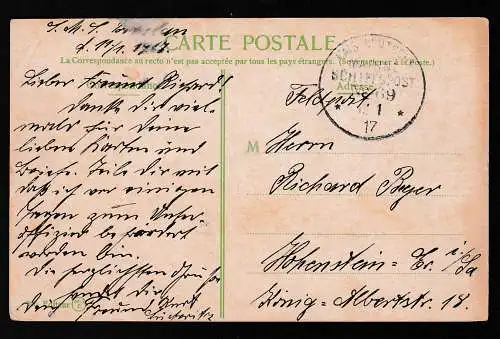 S. M. S.
d. 14/1. 1917.
CARTE POSTALE
La Correspondance au recto n'est pas acceptée par tous les pays étrangers. (Se renseigner à la Poste.)
Lieber Freund Richard!
Danke Dir viel-
mals für Deine
lieben Karten und
Briefe. Teile Dir mit
daß ich vor einigen
Tagen zum Unter-
offizier befördert
worden bin.
Die herzlichsten Grüße
sendet Dir
Dein Freund Kurt
Adresse
KAIS. DEUTSCHE
MARINE
SCHIFFSPOST
69
1
17
Feldpost
M
Herrn
Richard Beyer
Hohenstein-Er. i/Sa
König-Albertstr. 18.